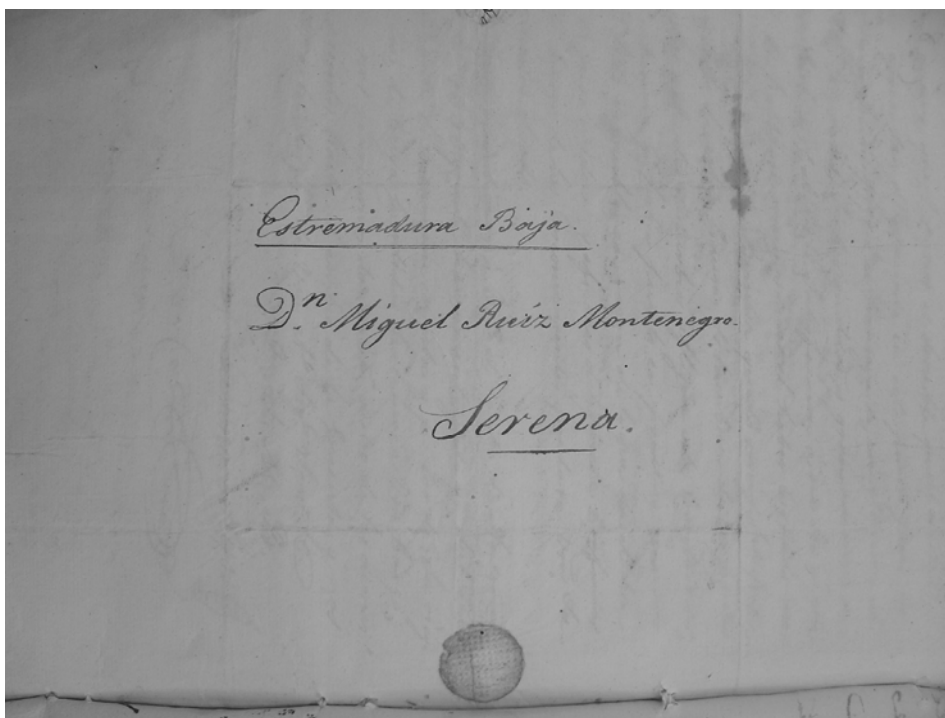 Estremadura Baja.
Dn. Miguel Ruíz Montenegro.
Serena.